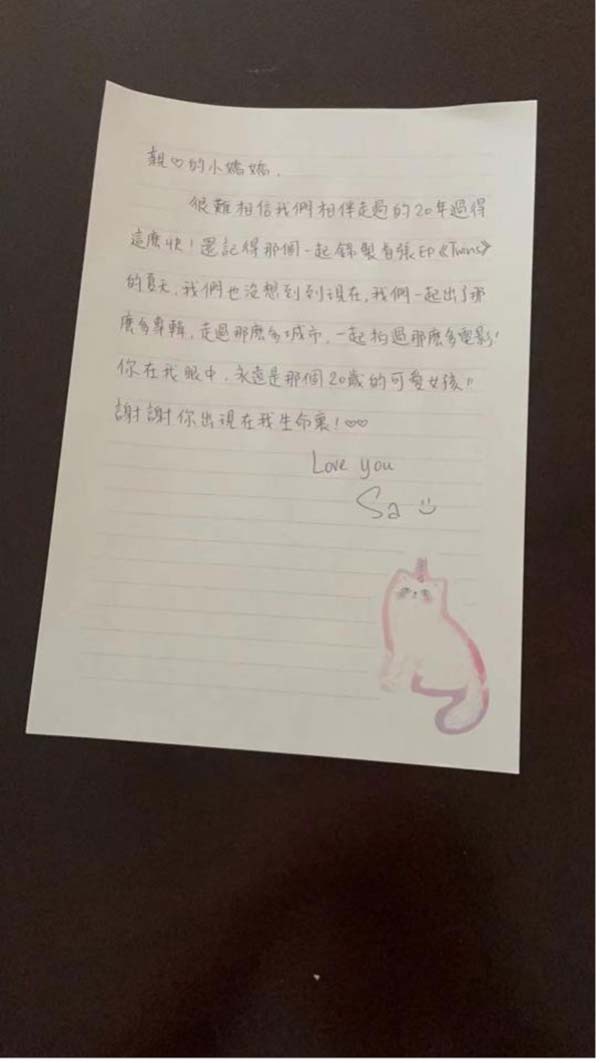 親♡的小嬌嬌,
很難相信我們相伴走過的20年過得
這麼快!還記得那個一起錄製首張EP《Twins》
的夏天,我們也沒想到到現在,我們一起出了那
麼多專輯,走過那麼多城市,一起拍過那麼多電影!
你在我眼中,永遠是那個20歲的可愛女孩!!
謝謝你出現在我生命裏!♡♡
Love you
Sa